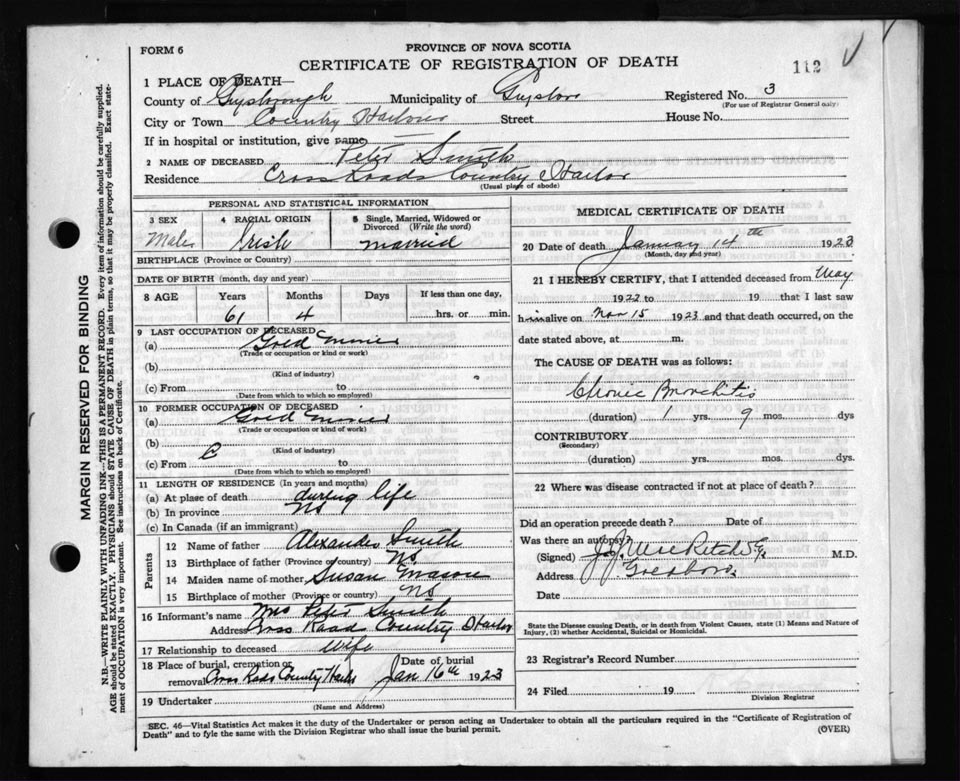 PROVINCE OF NOVA SCOTIA
FORM 6
CERTIFICATE OF REGISTRATION OF DEATH
112
1 PLACE OF DEATH—
County of Guysborough Municipality of Guysboro Registered No. 3
(For use of Registrar General only)
City or Town Country Harbour Street House No.
If in hospital or institution, give name
2 NAME OF DECEASED Peter Smith
Residence Cross Roads Country Harbor
(Usual place of abode)
PERSONAL AND STATISTICAL INFORMATION
3 SEX Male
4 RACIAL ORIGIN Irish
5 Single, Married, Widowed or Divorced (Write the word) married
BIRTHPLACE (Province or Country)
DATE OF BIRTH (month, day and year)
8 AGE Years 61 Months 4 Days If less than one day, hrs. or min.
9 LAST OCCUPATION OF DECEASED
(a) Gold Miner
(Trade or occupation or kind or work)
(b)
(Kind of industry)
(c) From to
(Date from which to which so employed)
10 FORMER OCCUPATION OF DECEASED
(a) Gold Miner
(Trade or occupation or kind of work)
(b)
(Kind of industry)
(c) From to
(Date from which to which so employed)
11 LENGTH OF RESIDENCE (In years and months)
(a) At place of death during life
(b) In province NS
(c) In Canada (if an immigrant)
Parents
12 Name of father Alexander Smith
13 Birthplace of father (Province or country) NS
14 Maiden name of mother Susan Mason
15 Birthplace of mother (Province or country) NS
16 Informant's name Mrs Peter Smith
Address Cross Road Country Harbor
17 Relationship to deceased wife
18 Place of burial, cremation or removal Cross Roads Country Harbor Date of burial Jan 16th 1923
19 Undertaker
(Name and Address)
MEDICAL CERTIFICATE OF DEATH
20 Date of death January 14th 1923
(Month, day and year)
21 I HEREBY CERTIFY, that I attended deceased from May
1922 to 19 that I last saw
him alive on Nov 15 1923 and that death occurred, on the
date stated above, at m.
The CAUSE OF DEATH was as follows:
Chronic Bronchitis
(duration) 1 yrs. 9 mos. dys
CONTRIBUTORY
(Secondary)
(duration) yrs. mos. dys.
22 Where was disease contracted if not at place of death?
Did an operation precede death? Date of
Was there an autopsy?
(Signed) M.D.
Address Goldboro
Date
State the Disease causing Death, or in death from Violent Causes, state (1) Means and Nature of
Injury, (2) whether Accidental, Suicidal or Homicidal.
23 Registrar's Record Number
24 Filed 19
Division Registrar
SEC. 46—Vital Statistics Act makes it the duty of the Undertaker or person acting as Undertaker to obtain all the particulars required in the "Certificate of Registration of
Death" and to fyle the same with the Division Registrar who shall issue the burial permit.
(OVER)
MARGIN RESERVED FOR BINDING
N.B.—WRITE PLAINLY WITH UNFADING INK—THIS IS A PERMANENT RECORD. Every item of information should be carefully supplied.
AGE should be stated EXACTLY. PHYSICIANS should STATE CAUSE OF DEATH in plain terms, so that it may be properly classified. Exact state-
ment of OCCUPATION is very important. See instructions on back of Certificate.